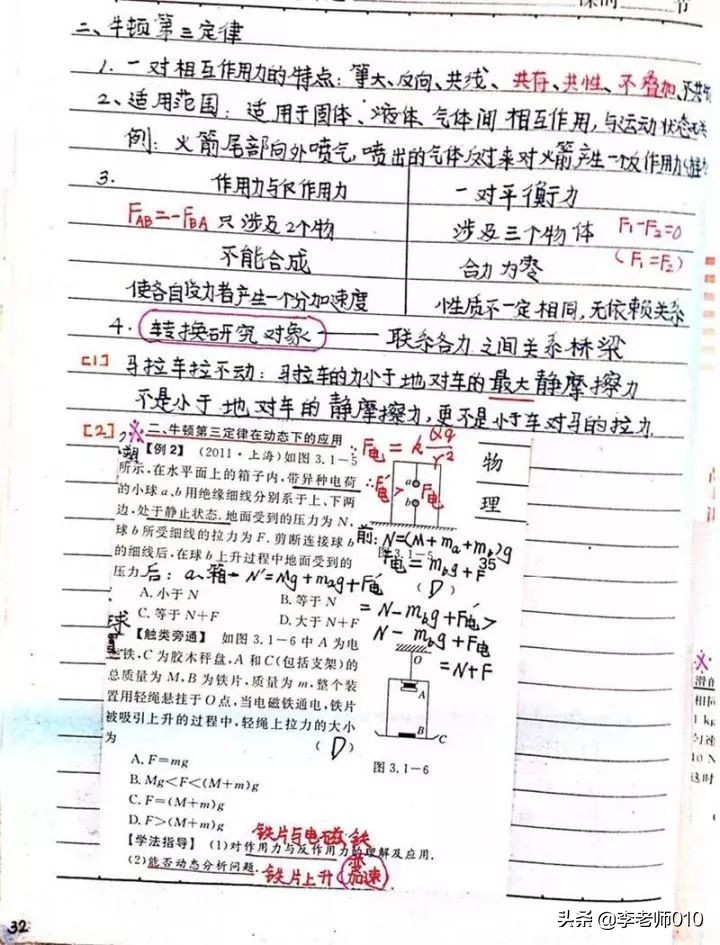 二、牛顿第三定律
1. 一对相互作用力的特点：等大、反向、共线、共存、共性、不叠加、
2、适用范围：适用于固体、液体、气体间相互作用，与运动状态无关
例：火箭尾部向外喷气，喷出的气体反过来对火箭产生一个反作用力
3. 作用力与反作用力 一对平衡力
FAB=-FBA 只涉及2个物 涉及三个物体 F₁-F₂=0
不能合成 合力为零 (F₁=F₂)
使各自受力者产生一个分加速度 性质不一定相同，无依赖关系
4. 转换研究对象 —— 联系各力之间关系桥梁
[1] 马拉车拉不动：马拉车的力小于地对车的最大静摩擦力
不是小于地对车的静摩擦力，更不是小于车对马的拉力
[2] 二、牛顿第三定律在动态下的应用
【例2】(2011·上海)如图 3.1-5
所示，在水平面上的箱子内，带异种电荷
的小球 a、b 用绝缘细线分别系于上、下两
边，处于静止状态. 地面受到的压力为 N，
球 b 所受细线的拉力为 F. 剪断连接球 b
的细线后，在球 b 上升过程中地面受到的
压力
(D)
A. 小于 N B. 等于 N
C. 等于 N+F D. 大于 N+F
F电=k Qq/r²
∴F电'>F电
a
b
图 3.1-5
物
理
35
前：N=(M+ma+mb)g
F电=mbg+F
后：a、箱- N'=Mg+mag+F电'
=N-mbg+F电'>
N-mbg+F电
=N+F
球
【触类旁通】 如图 3.1-6 中 A 为电
磁铁，C 为胶木秤盘，A 和 C(包括支架)的
总质量为 M，B 为铁片，质量为 m，整个装
置用轻绳悬挂于 O 点，当电磁铁通电，铁片
被吸引上升的过程中，轻绳上拉力的大小
为
(D)
A. F=mg
B. Mg<F<(M+m)g
C. F=(M+m)g
D. F>(M+m)g
O
A
B
C
图 3.1-6
铁片与电磁铁
【学法指导】 (1)对作用力与反作用力的理解及应用.
(2)能否动态分析问题.
铁片上升 变加速
32
头条 @李老师010